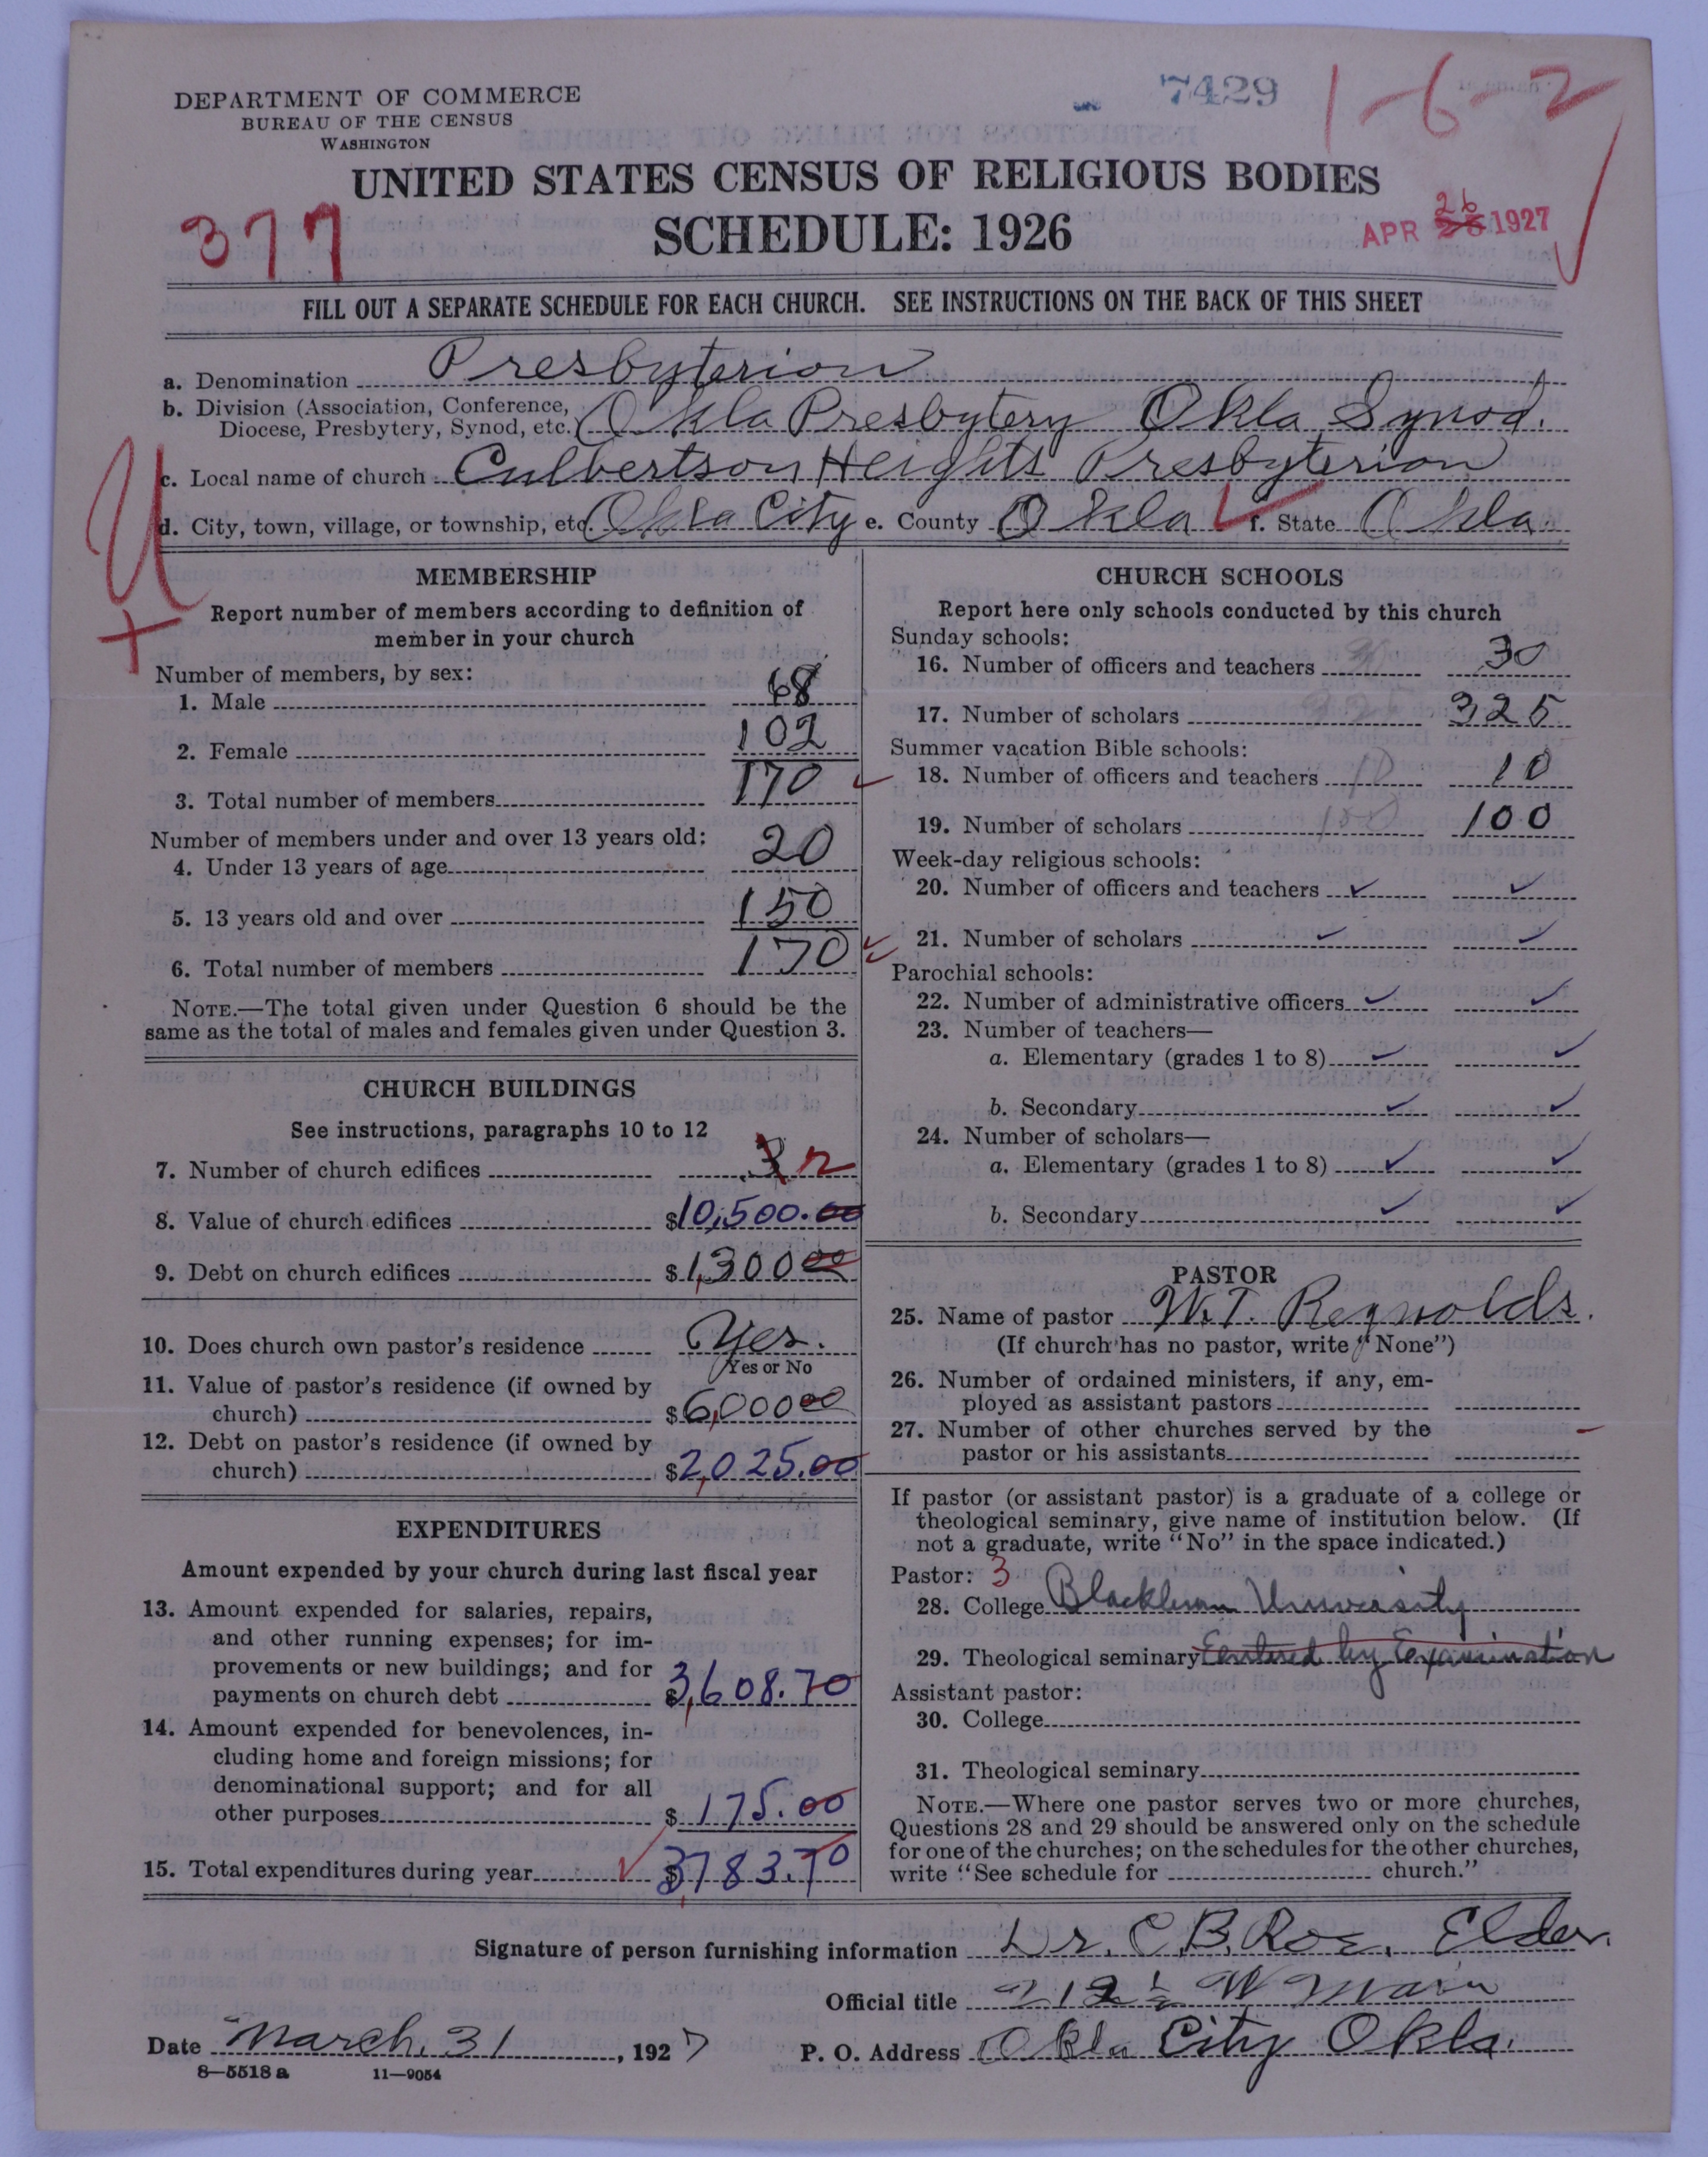 DEPARTMENT OF COMMERCE
BUREAU OF THE CENSUS
WASHINGTON
7429
1-6-2
UNITED STATES CENSUS OF RELIGIOUS BODIES
SCHEDULE: 1926
377
APR 26 1927
FILL OUT A SEPARATE SCHEDULE FOR EACH CHURCH. SEE INSTRUCTIONS ON THE BACK OF THIS SHEET
a. Denomination Presbyterion
b. Division (Association, Conference, Diocese, Presbytery, Synod, etc.) Okla Presbytery Okla Synod.
c. Local name of church Culbertson Heights Presbyterion
d. City, town, village, or township, etc. Okla City e. County Okla f. State Okla.
U
+
MEMBERSHIP
Report number of members according to definition of
member in your church
Number of members, by sex:
1. Male 68
2. Female 102
3. Total number of members 170
Number of members under and over 13 years old:
4. Under 13 years of age 20
5. 13 years old and over 150
6. Total number of members 170
NOTE.—The total given under Question 6 should be the
same as the total of males and females given under Question 3.
CHURCH BUILDINGS
See instructions, paragraphs 10 to 12
7. Number of church edifices 3 2
8. Value of church edifices $10,500.00
9. Debt on church edifices $1,300 00
10. Does church own pastor's residence Yes.
Yes or No
11. Value of pastor's residence (if owned by
church) $6,000 00
12. Debt on pastor's residence (if owned by
church) $2,025.00
EXPENDITURES
Amount expended by your church during last fiscal year
13. Amount expended for salaries, repairs,
and other running expenses; for im-
provements or new buildings; and for
payments on church debt $3,608.70
14. Amount expended for benevolences, in-
cluding home and foreign missions; for
denominational support; and for all
other purposes $175.00
15. Total expenditures during year $3,783.70
CHURCH SCHOOLS
Report here only schools conducted by this church
Sunday schools:
16. Number of officers and teachers 30
17. Number of scholars 325
Summer vacation Bible schools:
18. Number of officers and teachers 10 10
19. Number of scholars 100 100
Week-day religious schools:
20. Number of officers and teachers
21. Number of scholars
Parochial schools:
22. Number of administrative officers
23. Number of teachers—
a. Elementary (grades 1 to 8)
b. Secondary
24. Number of scholars—
a. Elementary (grades 1 to 8)
b. Secondary
PASTOR
25. Name of pastor W.T. Reynolds.
(If church has no pastor, write "None")
26. Number of ordained ministers, if any, em-
ployed as assistant pastors
27. Number of other churches served by the
pastor or his assistants
If pastor (or assistant pastor) is a graduate of a college or
theological seminary, give name of institution below. (If
not a graduate, write "No" in the space indicated.)
Pastor: 3
28. College Blackburn University
29. Theological seminary Entered by Examination
Assistant pastor:
30. College
31. Theological seminary
NOTE.—Where one pastor serves two or more churches,
Questions 28 and 29 should be answered only on the schedule
for one of the churches; on the schedules for the other churches,
write "See schedule for church."
Signature of person furnishing information Dr. C. B. Roe, Elder.
Official title 212 ½ W Main
Date March, 31, 1927 P. O. Address Okla City Okla.
8—5518 a 11—9054